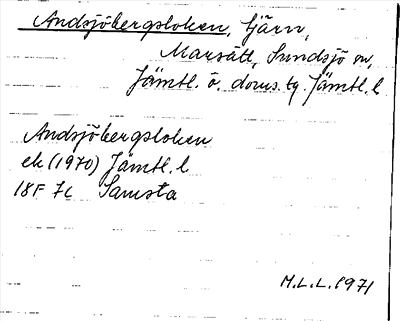 Andsjöbergsloken, tjärn,
Marsätt, Sundsjö sn,
Jämtl. ö. doms. tg. Jämtl. l
Andsjöbergsloken
ek (1970) Jämtl. l
18F 7c Samsta
M.L.L. 1971